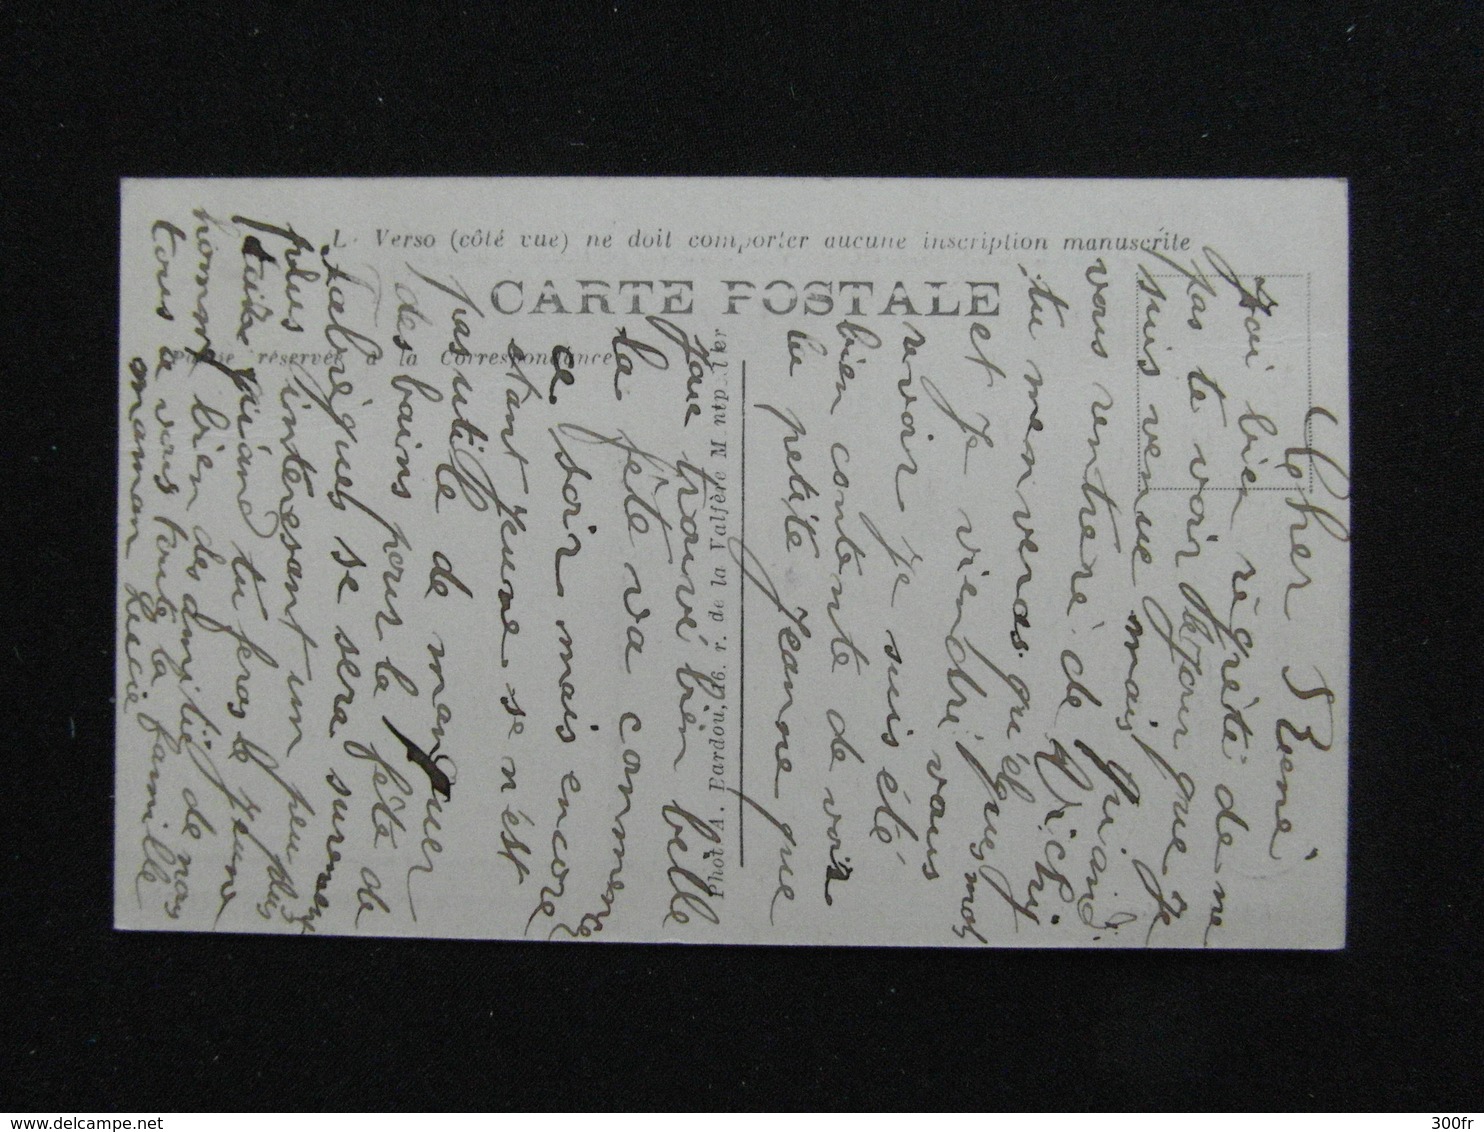 Le Verso (côté vue) ne doit comporter aucune inscription manuscrite
CARTE POSTALE
Partie réservée à la Correspondance
Phot. A. Bardou, 46. r. de la Valfère Montpellier
Cher Réné
jai bien régrété de ne
pas te voir le jour que je
suis venue mais quiand
vous rentreré de Vichy
tu menveras quelques mos
et je viendré vous
revoir je suis été
bien contente de voir
la petite jeanne que
jaue trouvé bien belle
la fête va commence
ce soir mais encore
étant jeune se n'est
pas utile de manquer
des bains pour la fête de
Fabrégues se sera surement
plus interesant un peu plus
tard quiand tu feras le jeune
homme bien des amitiéz de nous
tous a vous toute la famille
maman Lucie
300fr